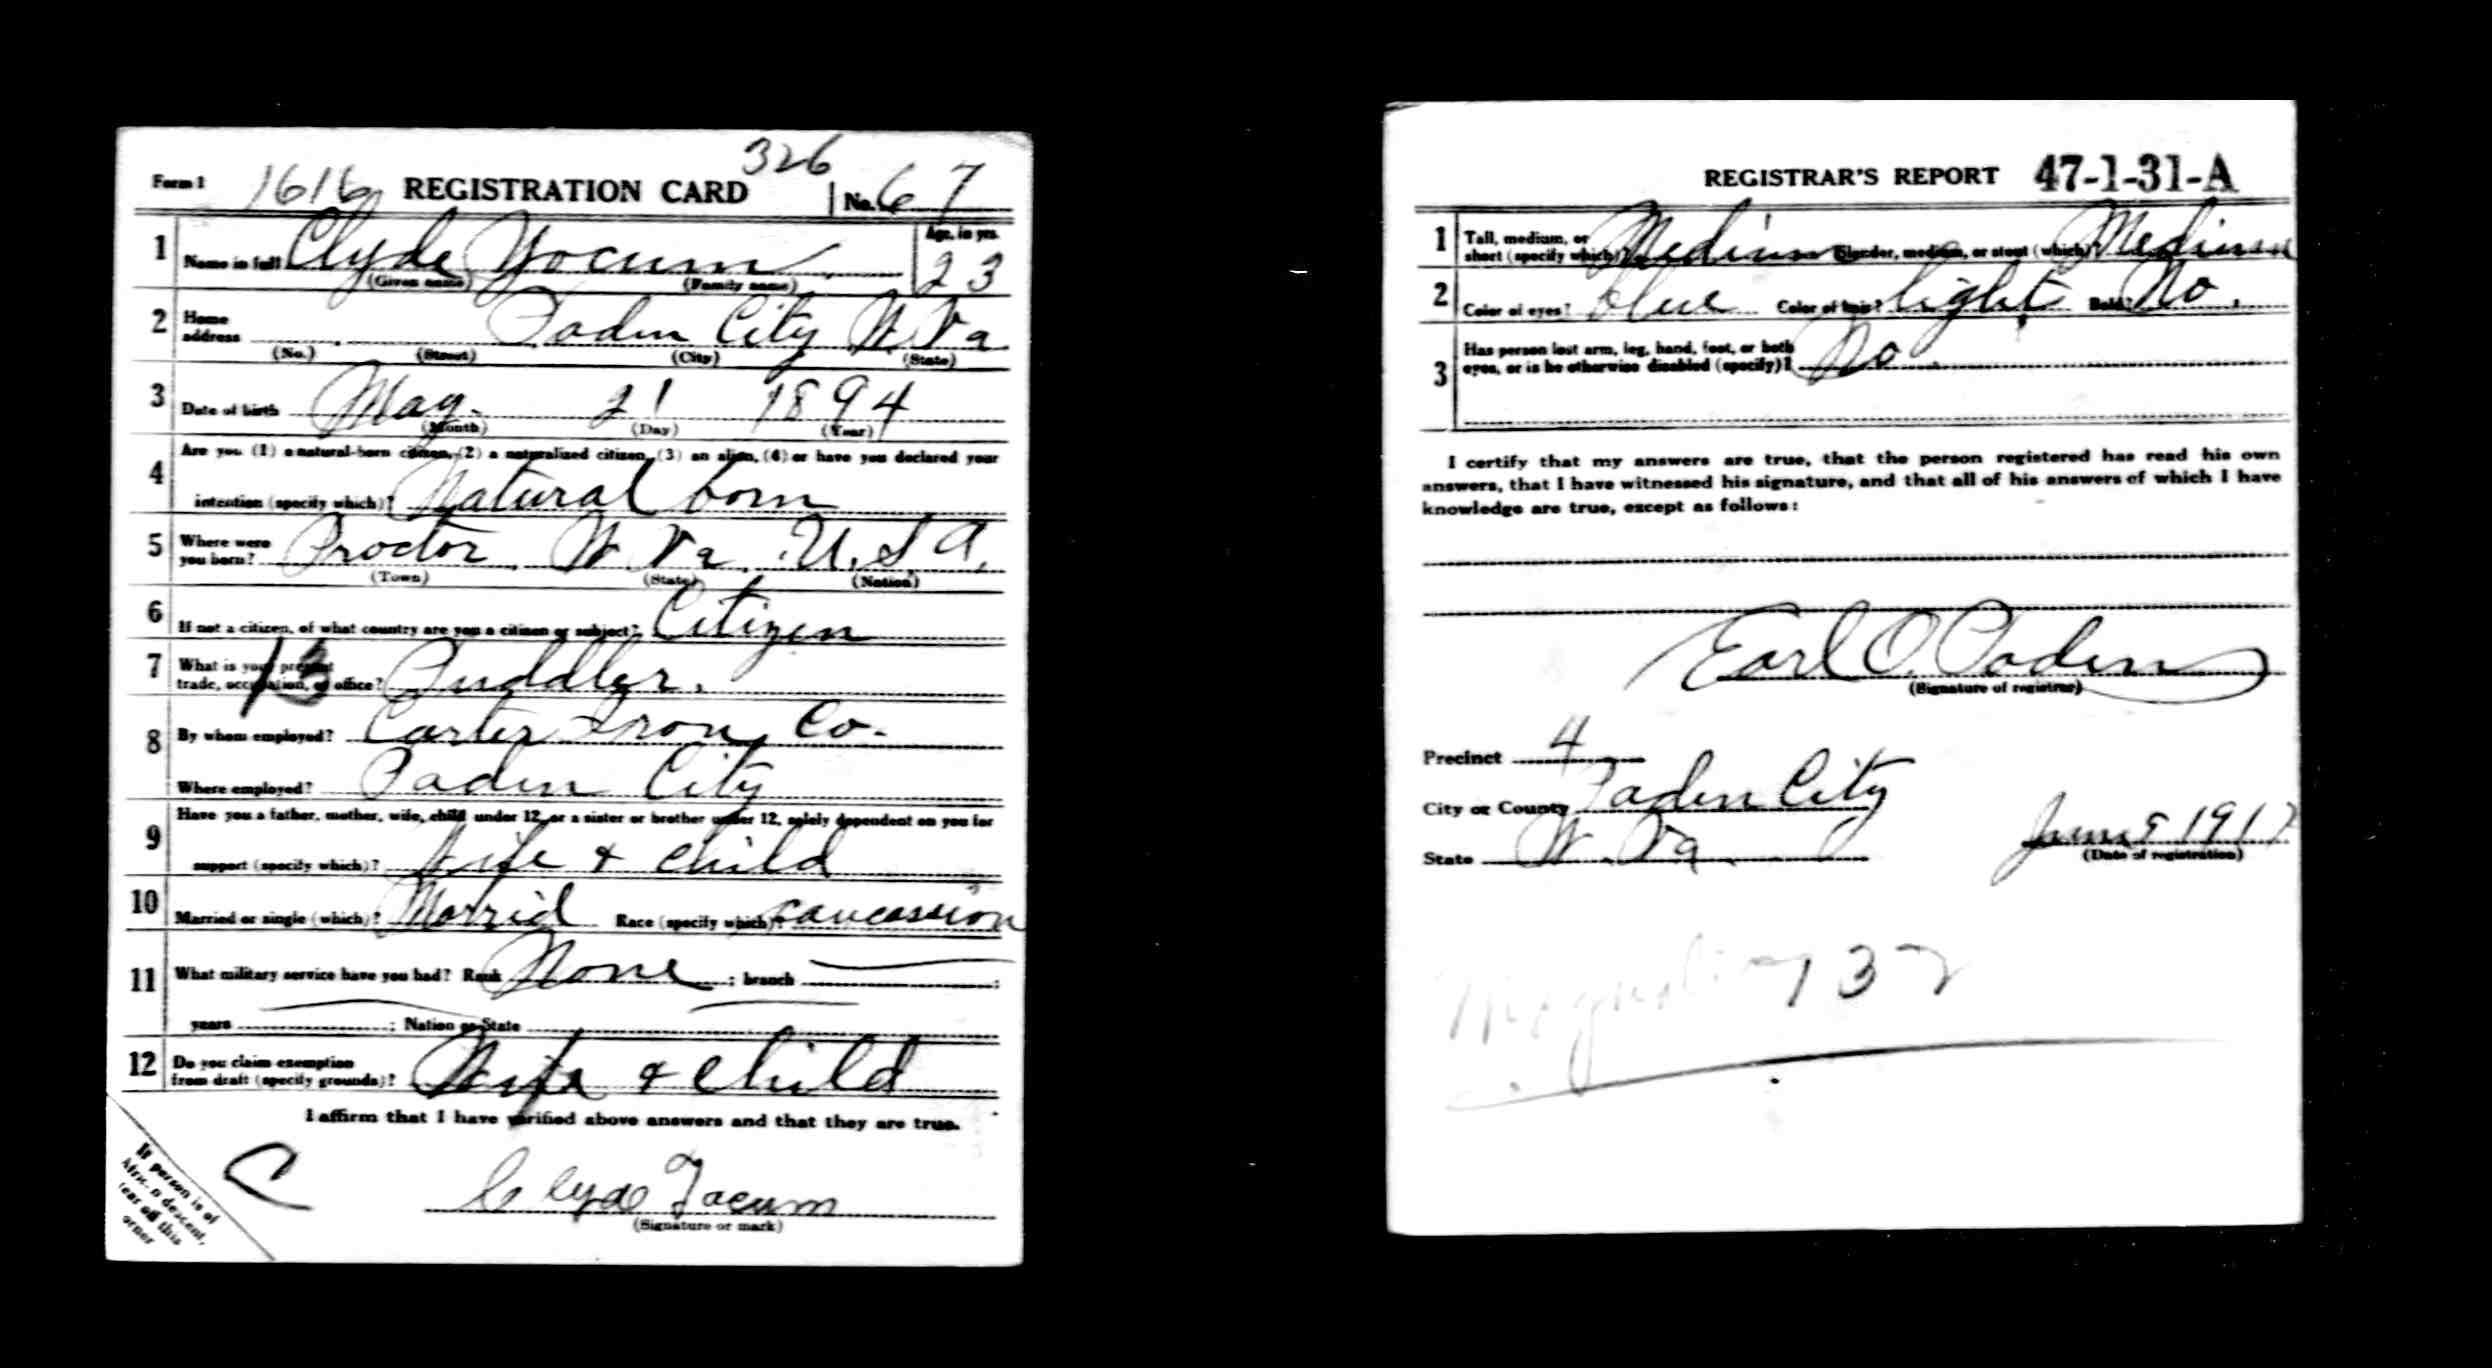 326
Form 1 1616 REGISTRATION CARD No. 67
1 Name in full Clyde Yocum Age, in yrs. 23
(Given name) (Family name)
2 Home address Paden City W. Va
(No.) (Street) (City) (State)
3 Date of birth May 21 1894
(Month) (Day) (Year)
4 Are you (1) a natural-born citizen, (2) a naturalized citizen, (3) an alien, (4) or have you declared your
intention (specify which)? Natural born
5 Where were you born? Proctor W. Va. U.S.A.
(Town) (State) (Nation)
6 If not a citizen, of what country are you a citizen or subject? Citizen
7 What is your present trade, occupation, or office? Puddler.
13
8 By whom employed? Carter Iron Co.
Where employed? Paden City
9 Have you a father, mother, wife, child under 12, or a sister or brother under 12, solely dependent on you for
support (specify which)? Wife & Child
10 Married or single (which)? Marrid Race (specify which)? Caucassion
11 What military service have you had? Rank None ; branch ;
years ; Nation or State
12 Do you claim exemption from draft (specify grounds)? Wife & Child
I affirm that I have verified above answers and that they are true.
C
Clyde Yocum
(Signature or mark)
If person is of
African descent,
tear off this
corner
REGISTRAR'S REPORT 47-1-31-A
1 Tall, medium, or short (specify which)? Medium Slender, medium, or stout (which)? Medium
2 Color of eyes? blue Color of hair? light Bald? No.
3 Has person lost arm, leg, hand, foot, or both
eyes, or is he otherwise disabled (specify)? No
I certify that my answers are true, that the person registered has read his own
answers, that I have witnessed his signature, and that all of his answers of which I have
knowledge are true, except as follows:
Earl O. Paden
(Signature of registrar)
Precinct 4
City or County Paden City
State W. Va. June 5 1917
(Date of registration)
Magnolia 132